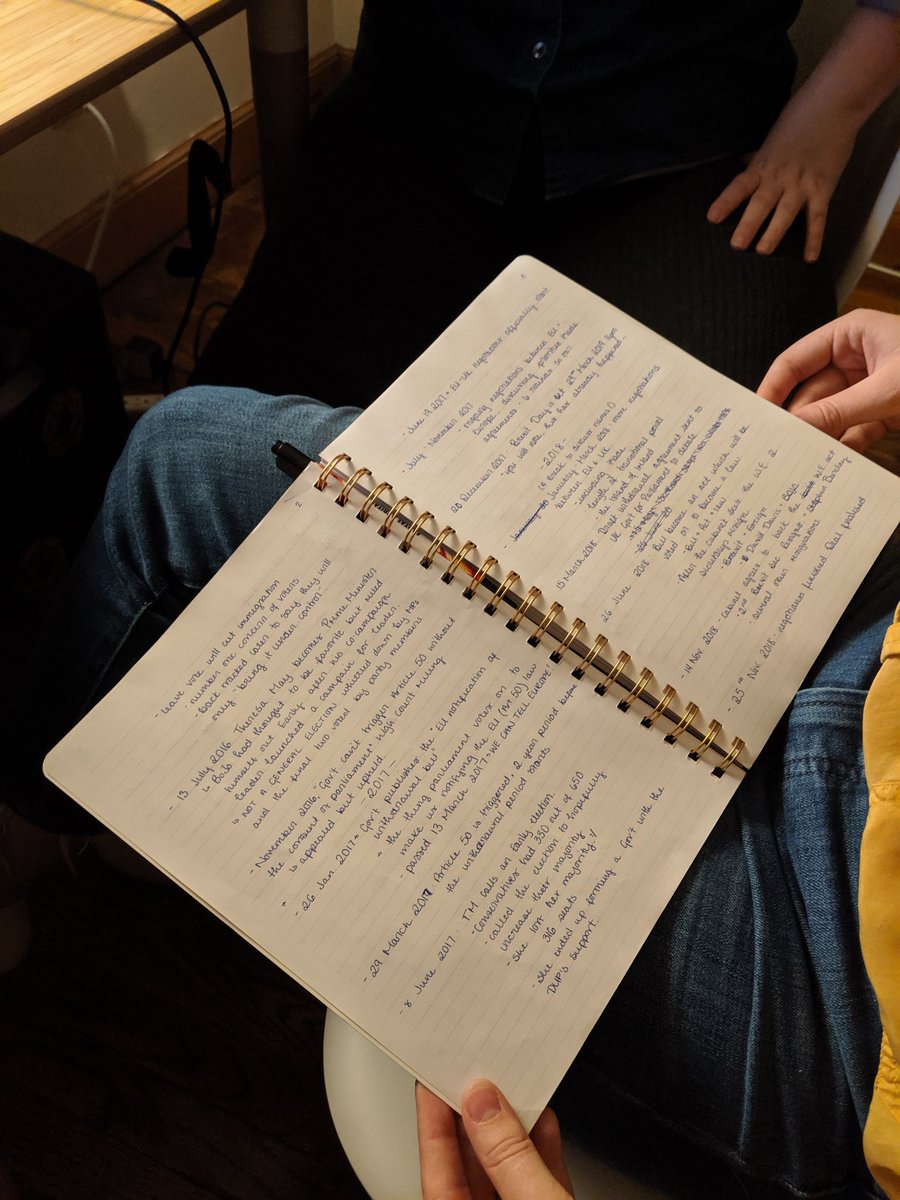 2
- leave vote will cut immigration
- number one concern of voters
- back tracked later to say they will
only bring it under control.
- 13 July 2016. Theresa May becomes Prime Minister
↳ BoJo had thought to be favorite but ruled
himself out early after his co-campaign
leader launched a campaign for leader
↳ NOT A GENERAL ELECTION whittled down by MPs
and the final two voted by party members
- November 2016. "Gov't can't trigger Article 50 without
the consent of parliament" high court ruling
↳ appealed but upheld.
2017 -
- 26 Jan 2017 - Gov't publishes the "EU notification of
withdrawal bill"
- the thing parliament votes on to
make us notifying the EU (Art 50) law
- passed 13 March 2017 - WE CAN TELL EUROPE
- 29 March 2017 Article 50 is triggered, 2 year period before
the withdrawal period starts
- 8 June 2017. TM calls an early election.
- Conservatives had 330 out of 650
- called the election to hopefully
increase their majority
- she lost her majority!!
316 seats
- she ended up forming a Gov't with the
DUP's support.
3
- June 19 2017 - EU-UK negotiations officially start
- July - November 2017
- ongoing negotiations between EU -
Europe - discussing priorities, make
agreements - 6 rounds so far
20 December 2017 Brexit Day is set 29th March 2019 11pm
- you will note this has already happened.
- 2018 -
(a break to devour names!)
January - March 2018 more negotiations
between EU & UK
- including trade
- length of transitional period
- the island of Ireland
15 March 2018 - Draft withdrawal agreement sent to
UK Gov't for Parliament to debate
26 June 2018 Bill become an act which will be
voted on to become a law
- Bill → Act → law
After the cabinet sent the W.E. 2
secretarys resign
Brexit + foreign
David Davis - BoJo
- 14 Nov 2018 - Cabinet agree to back the W.E. act
- 2nd Brexit Sec. resigns - Stephen Barclay
- several other resignations
- 25th Nov. 2018 - negotiations finished, deal finalised